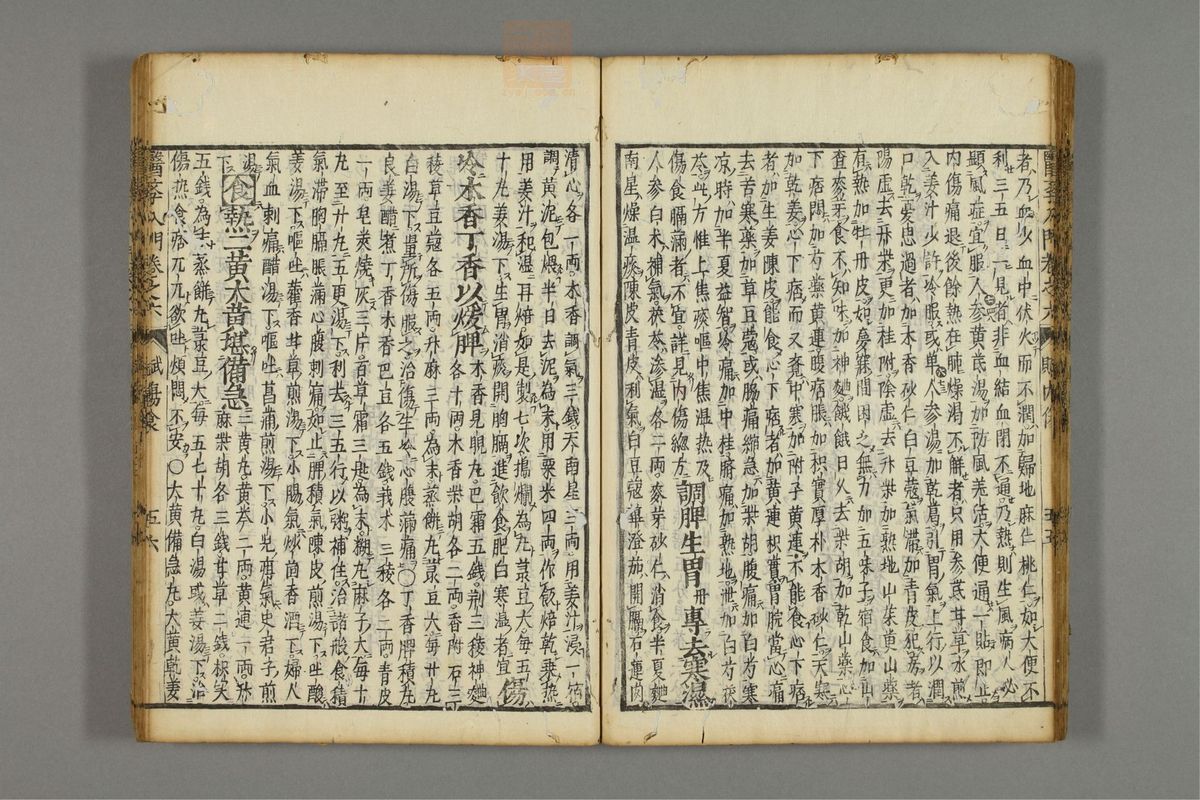 者乃血少血中伏火而不潤加歸地麻仁桃仁如大便不
利三五日一見者非血結血閉不通乃熱則生風病人必
顯風症宜服人參黃芪湯加防風羌活大便通一貼即止
內傷痛退後餘熱在脾燥渴不解者只用參芪甘草水煎
入姜汁少許冷服或單人參湯加乾葛引胃氣上行以潤
口乾憂思過者加木香砂仁白豆蔻氣滯加青皮犯房者
陽虛去升柴更加桂附陰虛去升柴加熟地山茱萸山藥
有熱加牡丹皮如夢寐間困乏無力加五味子宿食加山
查麥芽食不知味加神麴餓餓日久去柴胡加乾山藥心
下痞悶加芍藥黃連腹痞脹加枳實厚朴木香砂仁天寒
加乾姜心下痞而又腹中寒加附子黃連不能食心下痞
者加生姜陳皮能食心下痞者加黃連枳實胃脘當心痛
去苦寒藥加草豆蔻或腸痛縮急加柴胡腹痛加白芍寒
涼時加半夏益智冷痛加中桂臍痛加熟地泄加白芍茯
苓此方惟上焦痰嘔中焦溫熱及
傷食膈滿者不宜詳見內傷總方
調脾生胃丹專去寒濕
人參白朮補氣茯苓滲濕各二兩麥芽砂仁消食半夏麴
南星燥濕痰陳皮青皮利氣白豆蔻蓽澄茄開膈石蓮肉
醫學入門卷之六 賦內傷 五五
清心各一兩木香調氣三錢天南星三兩用姜汁浸一宿
調黃泥包煨半日去泥為末用粟米四兩作飯焙乾乘熱
用姜汁和溫再焙如是製七次搗爛為丸菉豆大每五
十丸姜湯下生胃消痰開胸膈進飲食肥白寒濕者宜
傷
冷木香丁香以煖脾
木香見晛丸巴霜五錢荆三稜神麴各十兩木香柴胡各二兩香附石三
稜草豆蔻各五兩升麻三兩為末蒸餅丸菉豆大每廿丸
白湯下量所傷服之治傷生冷心腹滿痛〇丁香脾積丸
良姜醋煮丁香木香巴豆各五錢莪朮三稜各二兩青皮
一兩皂莢燒灰三片百草霜三匙為末糊丸麻子大每十
丸至廿丸五更湯下利去三五行以粥補住治諸般食積
氣滯胸膈脹滿心腹刺痛如止脾積氣陳皮煎湯下吐酸
姜湯下嘔吐藿香甘草煎湯下小腸氣炒茴香酒下婦人
氣血刺痛醋湯下嘔吐菖蒲煎湯下小兒疳氣史君子煎
湯下
食熱二黃大黃堪備急
二黃丸黃芩二兩黃連一兩升麻柴胡各三錢甘草二錢枳實
五錢為生蒸餅丸菉豆大每五七十丸白湯或姜湯下治
傷熱食痞兀兀欲吐煩悶不安〇大黃備急丸大黃乾姜
醫學入門卷之六 賦傷食 五六